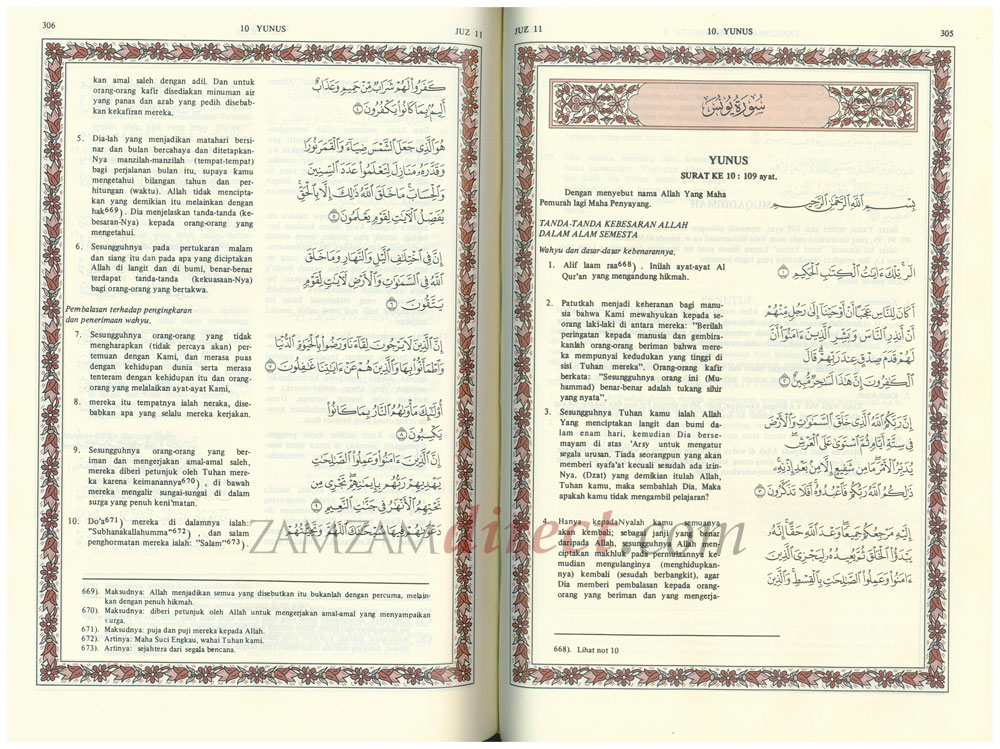 JUZ 11
10. YUNUS
305
سُورَةُ يُونُسَ
YUNUS
SURAT KE 10 : 109 ayat.
Dengan menyebut nama Allah Yang Maha
Pemurah lagi Maha Penyayang.
بِسْمِ اللَّهِ الرَّحْمَٰنِ الرَّحِيمِ
TANDA-TANDA KEBESARAN ALLAH
DALAM ALAM SEMESTA
Wahyu dan dasar-dasar kebenarannya.
1. Alif laam raa668). Inilah ayat-ayat Al
Qur'an yang mengandung hikmah.
الٓر ۚ تِلْكَ ءَايَٰتُ ٱلْكِتَٰبِ ٱلْحَكِيمِ ۝١
2. Patutkah menjadi keheranan bagi manu-
sia bahwa Kami mewahyukan kepada se-
orang laki-laki di antara mereka: "Berilah
peringatan kepada manusia dan gembira-
kanlah orang-orang beriman bahwa mere-
ka mempunyai kedudukan yang tinggi di
sisi Tuhan mereka". Orang-orang kafir
berkata: "Sesungguhnya orang ini (Mu-
hammad) benar-benar adalah tukang sihir
yang nyata".
أَكَانَ لِلنَّاسِ عَجَبًا أَنْ أَوْحَيْنَآ إِلَىٰ رَجُلٍ مِّنْهُمْ
أَنْ أَنذِرِ ٱلنَّاسَ وَبَشِّرِ ٱلَّذِينَ ءَامَنُوٓا۟ أَنَّ
لَهُمْ قَدَمَ صِدْقٍ عِندَ رَبِّهِمْ ۗ قَالَ
ٱلْكَٰفِرُونَ إِنَّ هَٰذَا لَسَٰحِرٌ مُّبِينٌ ۝٢
3. Sesungguhnya Tuhan kamu ialah Allah
Yang menciptakan langit dan bumi da-
lam enam hari, kemudian Dia berse-
mayam di atas 'Arsy untuk mengatur
segala urusan. Tiada seorangpun yang akan
memberi syafa'at kecuali sesudah ada izin-
Nya. (Dzat) yang demikian itulah Allah,
Tuhan kamu, maka sembahlah Dia. Maka
apakah kamu tidak mengambil pelajaran?
إِنَّ رَبَّكُمُ ٱللَّهُ ٱلَّذِى خَلَقَ ٱلسَّمَٰوَٰتِ وَٱلْأَرْضَ
فِى سِتَّةِ أَيَّامٍ ثُمَّ ٱسْتَوَىٰ عَلَى ٱلْعَرْشِ ۖ
يُدَبِّرُ ٱلْأَمْرَ ۖ مَا مِن شَفِيعٍ إِلَّا مِنۢ بَعْدِ إِذْنِهِۦ ۚ
ذَٰلِكُمُ ٱللَّهُ رَبُّكُمْ فَٱعْبُدُوهُ ۚ أَفَلَا تَذَكَّرُونَ ۝٣
4. Hanya kepadaNyalah kamu semuanya
akan kembali; sebagai janji yang benar
daripada Allah, sesungguhnya Allah men-
ciptakan makhluk pada permulaannya ke-
mudian mengulanginya (menghidupkan-
nya) kembali (sesudah berbangkit), agar
Dia memberi pembalasan kepada orang-
orang yang beriman dan yang mengerja-
إِلَيْهِ مَرْجِعُكُمْ جَمِيعًا ۖ وَعْدَ ٱللَّهِ حَقًّا ۚ إِنَّهُۥ
يَبْدَؤُا۟ ٱلْخَلْقَ ثُمَّ يُعِيدُهُۥ لِيَجْزِىَ ٱلَّذِينَ
ءَامَنُوا۟ وَعَمِلُوا۟ ٱلصَّٰلِحَٰتِ بِٱلْقِسْطِ ۚ وَٱلَّذِينَ
668). Lihat not 10
306
10 YUNUS
JUZ 11
kan amal saleh dengan adil. Dan untuk
orang-orang kafir disediakan minuman air
yang panas dan azab yang pedih disebab-
kan kekafiran mereka.
كَفَرُوا۟ لَهُمْ شَرَابٌ مِّنْ حَمِيمٍ وَعَذَابٌ
أَلِيمٌۢ بِمَا كَانُوا۟ يَكْفُرُونَ ۝٤
5. Dia-lah yang menjadikan matahari bersi-
nar dan bulan bercahaya dan ditetapkan-
Nya manzilah-manzilah (tempat-tempat)
bagi perjalanan bulan itu, supaya kamu
mengetahui bilangan tahun dan per-
hitungan (waktu). Allah tidak mencipta-
kan yang demikian itu melainkan dengan
hak669). Dia menjelaskan tanda-tanda (ke-
besaran-Nya) kepada orang-orang yang
mengetahui.
هُوَ ٱلَّذِى جَعَلَ ٱلشَّمْسَ ضِيَآءً وَٱلْقَمَرَ نُورًا
وَقَدَّرَهُۥ مَنَازِلَ لِتَعْلَمُوا۟ عَدَدَ ٱلسِّنِينَ
وَٱلْحِسَابَ ۚ مَا خَلَقَ ٱللَّهُ ذَٰلِكَ إِلَّا بِٱلْحَقِّ ۚ
يُفَصِّلُ ٱلْءَايَٰتِ لِقَوْمٍ يَعْلَمُونَ ۝٥
6. Sesungguhnya pada pertukaran malam
dan siang itu dan pada apa yang diciptakan
Allah di langit dan di bumi, benar-benar
terdapat tanda-tanda (kekuasaan-Nya)
bagi orang-orang yang bertakwa.
إِنَّ فِى ٱخْتِلَٰفِ ٱلَّيْلِ وَٱلنَّهَارِ وَمَا خَلَقَ
ٱللَّهُ فِى ٱلسَّمَٰوَٰتِ وَٱلْأَرْضِ لَءَايَٰتٍ لِّقَوْمٍ
يَتَّقُونَ ۝٦
Pembalasan terhadap pengingkaran
dan penerimaan wahyu.
7. Sesungguhnya orang-orang yang tidak
mengharapkan (tidak percaya akan) per-
temuan dengan Kami, dan merasa puas
dengan kehidupan dunia serta merasa
tenteram dengan kehidupan itu dan orang-
orang yang melalaikan ayat-ayat Kami,
إِنَّ ٱلَّذِينَ لَا يَرْجُونَ لِقَآءَنَا وَرَضُوا۟ بِٱلْحَيَوٰةِ ٱلدُّنْيَا
وَٱطْمَأَنُّوا۟ بِهَا وَٱلَّذِينَ هُمْ عَنْ ءَايَٰتِنَا غَٰفِلُونَ ۝٧
8. mereka itu tempatnya ialah neraka, dise-
babkan apa yang selalu mereka kerjakan.
أُو۟لَٰٓئِكَ مَأْوَىٰهُمُ ٱلنَّارُ بِمَا كَانُوا۟
يَكْسِبُونَ ۝٨
9. Sesungguhnya orang-orang yang ber-
iman dan mengerjakan amal-amal saleh,
mereka diberi petunjuk oleh Tuhan mere-
ka karena keimanannya670), di bawah
mereka mengalir sungai-sungai di dalam
surga yang penuh keni'matan.
إِنَّ ٱلَّذِينَ ءَامَنُوا۟ وَعَمِلُوا۟ ٱلصَّٰلِحَٰتِ
يَهْدِيهِمْ رَبُّهُم بِإِيمَٰنِهِمْ ۖ تَجْرِى مِن
تَحْتِهِمُ ٱلْأَنْهَٰرُ فِى جَنَّٰتِ ٱلنَّعِيمِ ۝٩
10. Do'a671) mereka di dalamnya ialah:
"Subhanakallahumma"672), dan salam
penghormatan mereka ialah: "Salam"673).
دَعْوَىٰهُمْ فِيهَا سُبْحَٰنَكَ ٱللَّهُمَّ وَتَحِيَّتُهُمْ
669). Maksudnya: Allah menjadikan semua yang disebutkan itu bukanlah dengan percuma, melain-
kan dengan penuh hikmah.
670). Maksudnya: diberi petunjuk oleh Allah untuk mengerjakan amal-amal yang menyampaikan
surga.
671). Maksudnya: puja dan puji mereka kepada Allah.
672). Artinya: Maha Suci Engkau, wahai Tuhan kami.
673). Artinya: sejahtera dari segala bencana.
ZAMZAMdirect.com